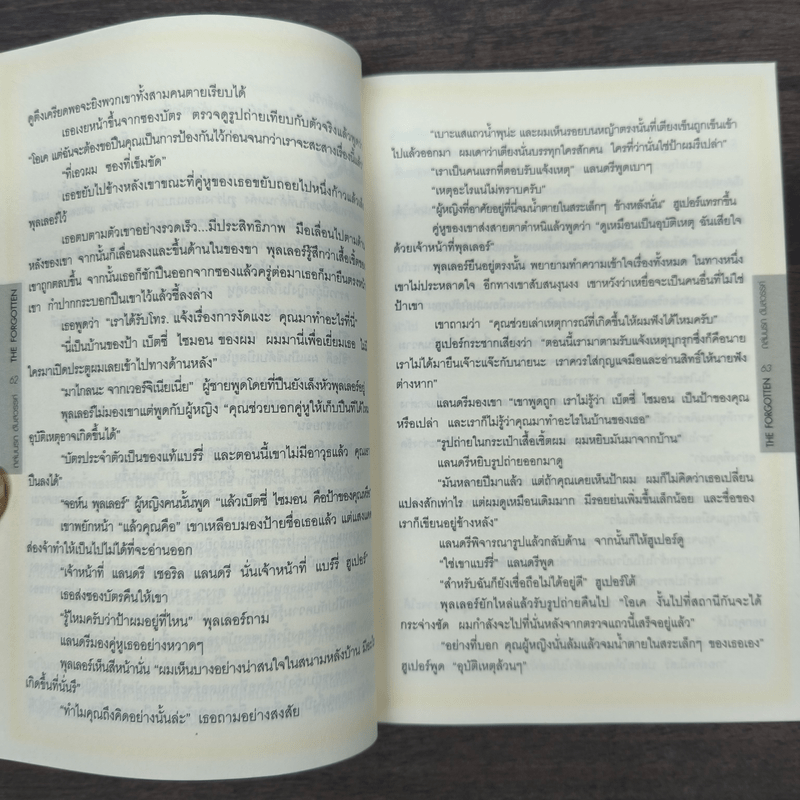 ดูตึงเครียดพอจะยิงพวกเขาทั้งสามคนตายเรียบได้
เธอเงยหน้าขึ้นจากซองบัตร ตรวจดูรูปถ่ายเทียบกับตัวจริงแล้วพูดว่า
“โอเค แต่ฉันจะต้องขอปืนคุณเป็นการป้องกันไว้ก่อนจนกว่าเราจะสะสางเรื่องนี้
“ที่เอวผม ซองที่เข็มขัด”
เธอขยับไปข้างหลังเขาขณะที่คู่หูของเธอขยับถอยไปหนึ่งก้าวแล้ว
พุลเลอร์ไว้
เธอตบตามตัวเขาอย่างรวดเร็ว...มีประสิทธิภาพ มือเลื่อนไปตาม
หลังของเขา จากนั้นก็เลื่อนลงและขึ้นด้านในของขา พุลเลอร์รู้สึกว่าเสื้อเชิ้ตของ
เขาถูกตลบขึ้น จากนั้นเธอก็ชักปืนออกจากซองแล้วครู่ต่อมาเธอก็มายืนตรงหน้า
เขา กำปากกระบอกปืนเขาไว้แล้วชี้ลงล่าง
เธอพูดว่า “เราได้รับโทร. แจ้งเรื่องการงัดแงะ คุณมาทำอะไรที่นี่”
“นี่เป็นบ้านของป้า เบ็ตซี่ ไซมอน ของผม ผมมานี่เพื่อเยี่ยมเธอ ไม่มี
ใครมาเปิดประตูผมเลยเข้าไปทางด้านหลัง”
“มาไกลนะ จากเวอร์จิเนียเนี่ย” ผู้ชายพูดโดยที่ปืนยังเล็งหัวพุลเลอร์อยู่
พุลเลอร์ไม่มองเขาแต่พูดกับผู้หญิง “คุณช่วยบอกคู่หูให้เก็บปืนทีได้ไหม
อุบัติเหตุอาจเกิดขึ้นได้”
“บัตรประจำตัวเป็นของแท้แบร์รี่ และตอนนี้เขาไม่มีอาวุธแล้ว คุณ
ปืนลงได้”
“จอห์น พุลเลอร์” ผู้หญิงคนนั้นพูด “แล้วเบ็ตซี่ ไซมอน คือป้าของคุณหรือ”
เขาพยักหน้า “แล้วคุณคือ” เขาเหลือบมองป้ายชื่อเธอแล้ว แต่แสงแดด
ส่องจ้าทำให้เป็นไปไม่ได้ที่จะอ่านออก
“เจ้าหน้าที่ แลนดรี เชอริล แลนดรี นั่นเจ้าหน้าที่ แบร์รี่ ฮูเปอร์”
เธอส่งซองบัตรคืนให้เขา
“รู้ไหมครับว่าป้าผมอยู่ที่ไหน” พุลเลอร์ถาม
แลนดรีมองคู่หูเธออย่างหวาดๆ
พุลเลอร์เห็นสีหน้านั่น “ผมเห็นบางอย่างน่าสนใจในสนามหลังบ้าน มีอะไร
เกิดขึ้นที่นั่นรึ”
“ทำไมคุณถึงคิดอย่างนั้นล่ะ” เธอถามอย่างสงสัย
กลุ่มมรดก ดัมสวรรค์ THE FORGOTTEN
“เบาะแสแถวน้ำพุน่ะ และผมเห็นรอยบนหญ้าตรงนั้นที่เตียงเข็นถูกเข็นเข้า
ไปแล้วออกมา ผมเดาว่าเตียงนั่นบรรทุกใครสักคน ใครที่ว่านั่นใช่ป้าผมรึเปล่า”
“เราเป็นคนแรกที่ตอบรับแจ้งเหตุ” แลนดรีพูดเบาๆ
“เหตุอะไรแน่ไม่ทราบครับ”
“ผู้หญิงที่อาศัยอยู่ที่นี่จมน้ำตายในสระเล็กๆ ข้างหลังนั่น” ฮูเปอร์แทรกขึ้น
คู่หูของเขาส่งสายตาตำหนิแล้วพูดว่า “ดูเหมือนเป็นอุบัติเหตุ ฉันเสียใจ
ด้วยเจ้าหน้าที่พุลเลอร์”
พุลเลอร์ยืนอยู่ตรงนั้น พยายามทำความเข้าใจเรื่องทั้งหมด ในทางหนึ่ง
เขาไม่ประหลาดใจ อีกทางเขาสับสนงุนงง เขาหวังว่าเหยื่อจะเป็นคนอื่นที่ไม่ใช่
ป้าเขา
เขาถามว่า “คุณช่วยเล่าเหตุการณ์ที่เกิดขึ้นให้ผมฟังได้ไหมครับ”
ฮูเปอร์กระชากเสียงว่า “ตอนนี้เรามาตามรับแจ้งเหตุบุกรุกซึ่งก็คือนาย
เราไม่ได้มายืนเจ๊าะแจ๊ะกับนายนะ เราควรใส่กุญแจมือและอ่านสิทธิ์ให้นายฟัง
ต่างหาก”
แลนดรีมองเขา “เขาพูดถูก เราไม่รู้ว่า เบ็ตซี่ ไซมอน เป็นป้าของคุณ
หรือเปล่า และเราก็ไม่รู้ว่าคุณมาทำอะไรในบ้านของเธอ”
“รูปถ่ายในกระเป๋าเสื้อเชิ้ตผม ผมหยิบมันมาจากบ้าน”
แลนดรีหยิบรูปถ่ายออกมาดู
“มันหลายปีมาแล้ว แต่ถ้าคุณเคยเห็นป้าผม ผมก็ไม่คิดว่าเธอเปลี่ยน
แปลงสักเท่าไร แต่ผมดูเหมือนเดิมมาก มีรอยย่นเพิ่มขึ้นเล็กน้อย และชื่อของ
เราก็เขียนอยู่ข้างหลัง”
แลนดรีพิจารณารูปแล้วกลับด้าน จากนั้นก็ให้ฮูเปอร์ดู
“ใช่เขาแบร์รี่” แลนดรีพูด
“สำหรับฉันก็ยังเชื่อถือไม่ได้อยู่ดี” ฮูเปอร์โต้
พุลเลอร์ยักไหล่แล้วรับรูปถ่ายคืนไป “โอเค งั้นไปที่สถานีกันจะได้
กระจ่างชัด ผมกำลังจะไปที่นั่นหลังจากตรวจแถวนี้เสร็จอยู่แล้ว”
“อย่างที่บอก คุณผู้หญิงนั่นล้มแล้วจมน้ำตายในสระเล็กๆ ของเธอเอง”
ฮูเปอร์พูด “อุบัติเหตุล้วนๆ”
THE FORGOTTEN